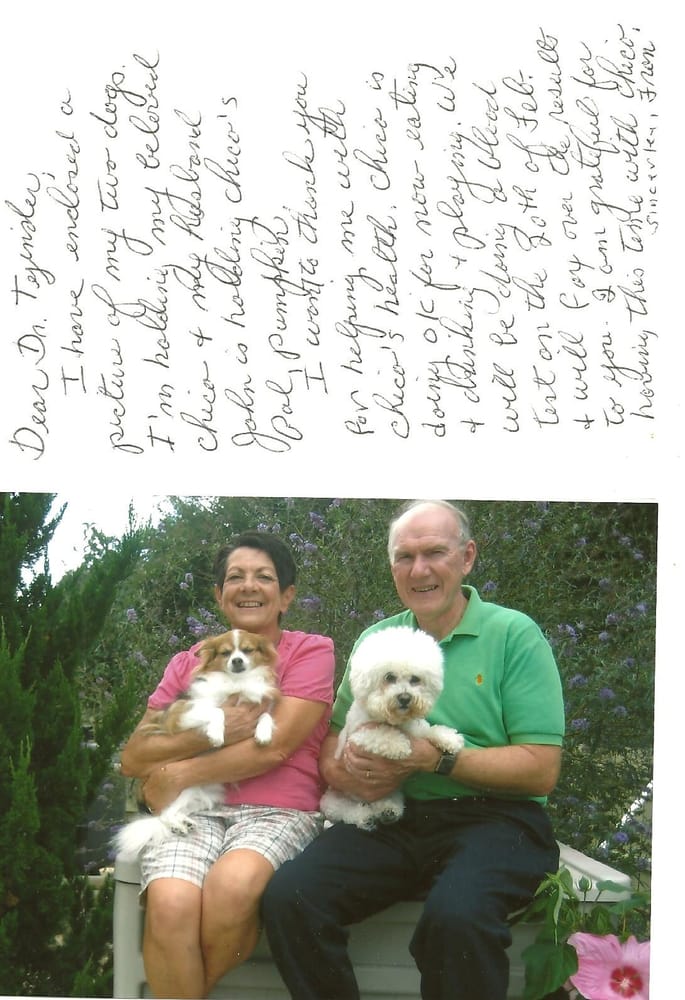 Dear Dr. Tejinder,
I have enclosed a
picture of my two dogs.
I'm holding my beloved
Chico + my husband
John is holding Chico's
Pal, Pumpkin.
I want to thank you
for helping me with
Chico's health. Chico is
doing OK for now eating
+ drinking + playing. We
will be doing a blood
test on the 20th of Feb.
+ will fax over the results
to you. I am grateful for
having this with Chico.
Sincerely, Fran